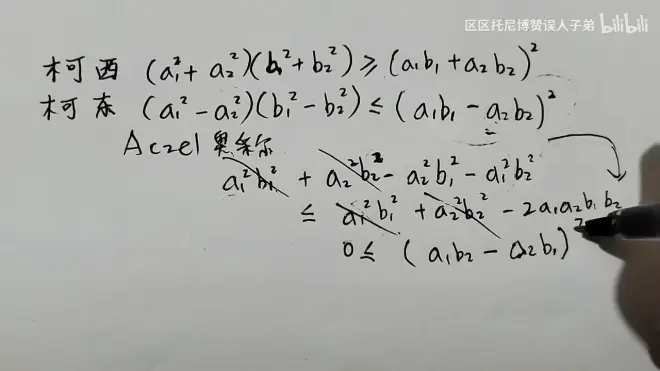 区区托尼博赞误人子弟 bilibili
柯西 (a₁² + a₂²)(b₁² + b₂²) ≥ (a₁b₁ + a₂b₂)²
柯东 (a₁² − a₂²)(b₁² − b₂²) ≤ (a₁b₁ − a₂b₂)²
Aczel 奥采尔
a₁²b₁² + a₂²b₂² − a₂²b₁² − a₁²b₂²
≤ a₁²b₁² + a₂²b₂² − 2a₁a₂b₁b₂
0 ≤ (a₁b₂ − a₂b₁)²